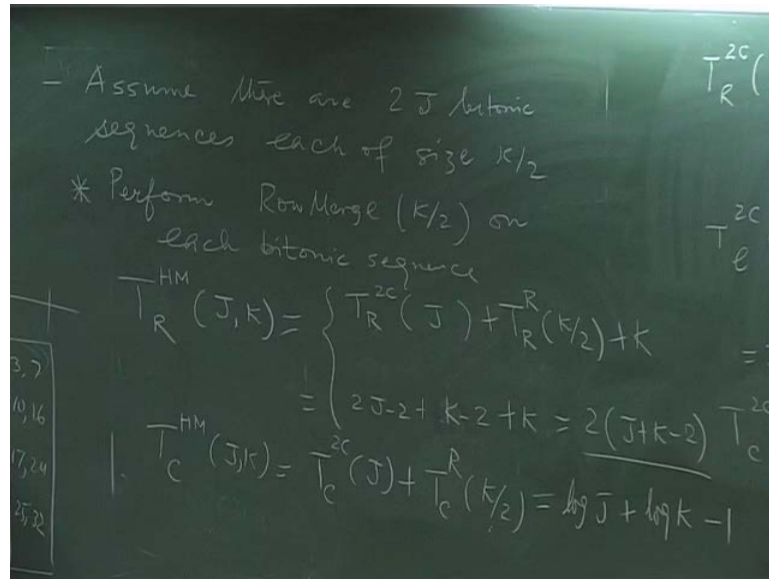 - Assume there are 2J bitonic
sequences each of size K/2
* Perform RowMerge (K/2) on
each bitonic sequence
T_R^{HM} (J,K) = { T_R^{2C} (J) + T_R^R (K/2) + K
= { 2J-2 + K-2 + K = 2(J+K-2)
T_C^{HM} (J,K) = T_C^{2C} (J) + T_C^R (K/2) = log J + log K - 1
T_R^{2C} (
T_l^{2C}
=
T_C^{2C}
3,9
10,16
17,24
25,32